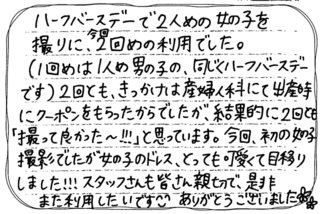 ハーフバースデーで2人めの女の子を
撮りに、今回2回めの利用でした。
(1回めは1人め男の子の、同じくハーフバースデー
です)2回とも、きっかけは産婦人科にて出産時
にクーポンをもらったからでしたが、結果的に2回とも
「撮って良かった〜!!!」と思っています。今回、初の女の子
撮影でしたが女の子のドレス、とっても可愛くて目移り
しました!!!スタッフさんも皆さん親切で、是非
また利用したいです♡ ありがとうございました